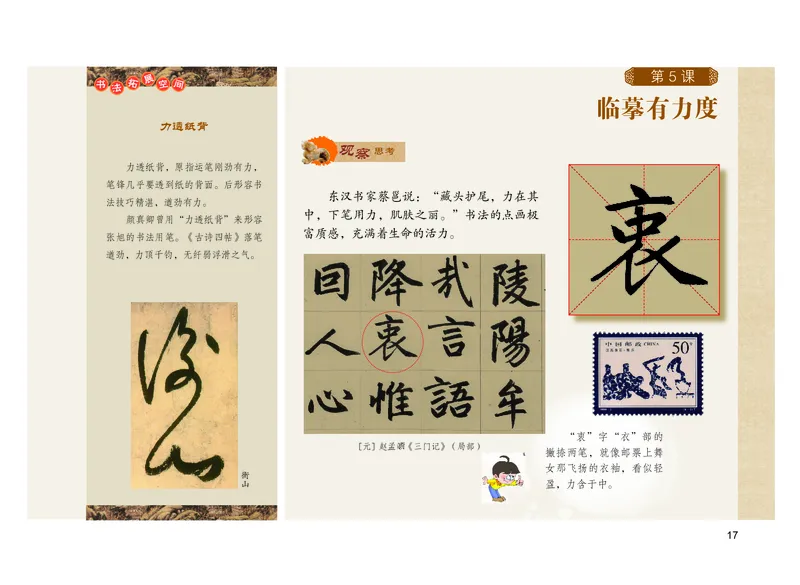 书法拓展空间
力透纸背
力透纸背，原指运笔刚劲有力，
笔锋几乎要透到纸的背面。后形容书
法技巧精湛，遒劲有力。
颜真卿曾用“力透纸背”来形容
张旭的书法用笔。《古诗四帖》落笔
遒劲，力顶千钧，无纤弱浮滑之气。
衡
山
第5课
临摹有力度
观察思考
东汉书家蔡邕说：“藏头护尾，力在其
中，下笔用力，肌肤之丽。”书法的点画极
富质感，充满着生命的活力。
回 降 哉 陵
人 衷 言 陽
心 惟 語 牟
[元] 赵孟頫《三门记》（局部）
衷
中国邮政 CHINA
50分
“衷”字“衣”部的
撇捺两笔，就像邮票上舞
女那飞扬的衣袖，看似轻
盈，力含于中。
17